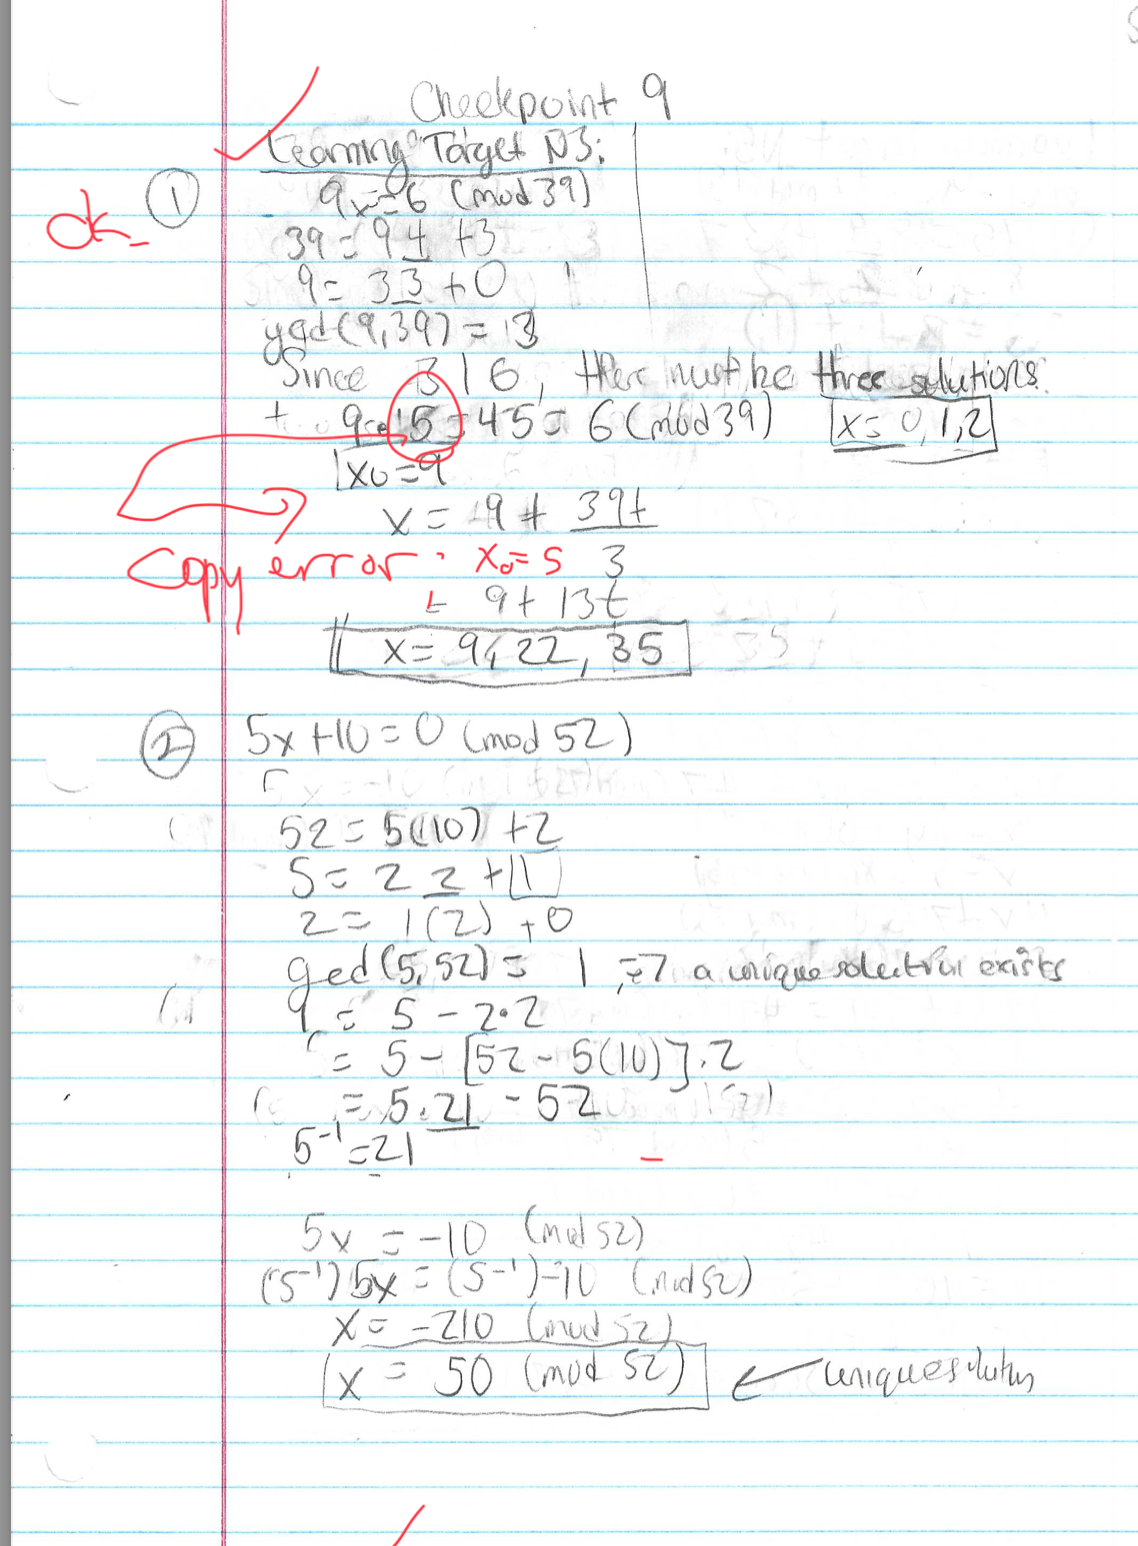 Checkpoint 9
Learning Target N3:
ok
① 9x ≡ 6 (mod 39)
39 = 9 4 + 3
9 = 3 3 + 0
gcd (9,39) = 3
Since 3 | 6, there must be three solutions.
9 5 = 45 = 6 (mod 39) x = 0, 1, 2
x0 = 9
x = 9 + 39t
Copy error: x0 = 5 3
= 9 + 13t
x = 9, 22, 35
② 5x + 10 = 0 (mod 52)
52 = 5(10) + 2
5 = 2 2 + 1
2 = 1(2) + 0
gcd (5, 52) = 1, => a unique solution exists
1 = 5 - 2·2
= 5 - [52 - 5(10)]·2
= 5·21 - 52
5⁻¹ = 21
5x = -10 (mod 52)
(5⁻¹) 5x = (5⁻¹) -10 (mod 52)
x = -210 (mod 52)
x = 50 (mod 52) ← unique solution